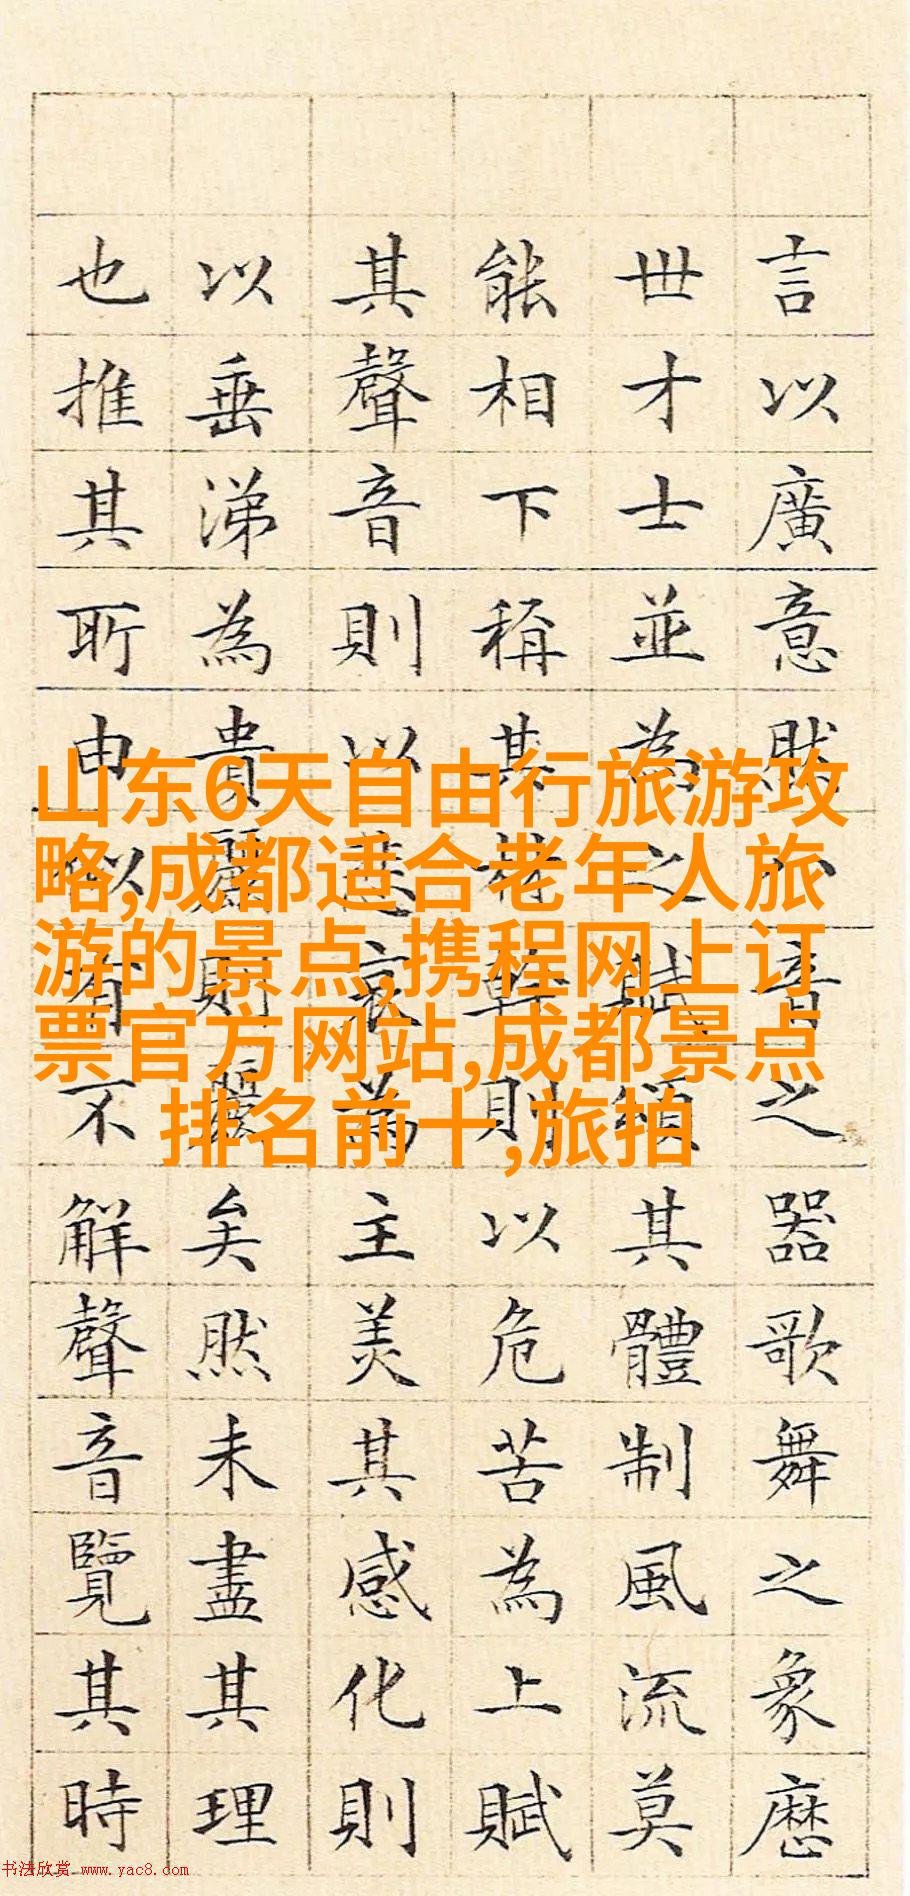 言以廣意然八音之器歌舞之象歷
世才士並為之賦頌其體制風流莫
能相下稱其材幹則以危苦為上賦
其聲音則以悲哀為主美其感化則
以垂涕為貴麗則麗矣然未盡其理
也推其所由似不解聲音覽其時
山东6天自由行旅游攻
略,成都适合老年人旅
游的景点,携程网上订
票官方网站,成都景点
排名前十,旅拍
书法欣赏 www.yac8.com